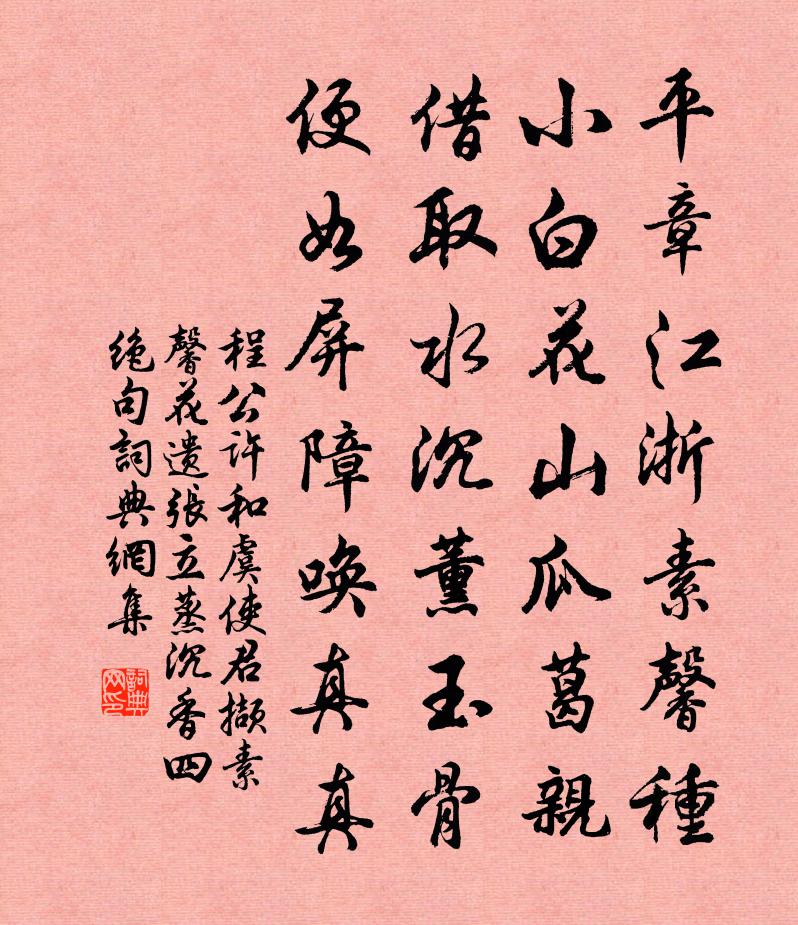 平章江浙素馨種
小白花山瓜葛親
借取水沉薰玉骨
便如屏障喚真真
程公許和虞使君擷素
馨花遺張立蒸沉香四
絶句詞典網集
詞典网印